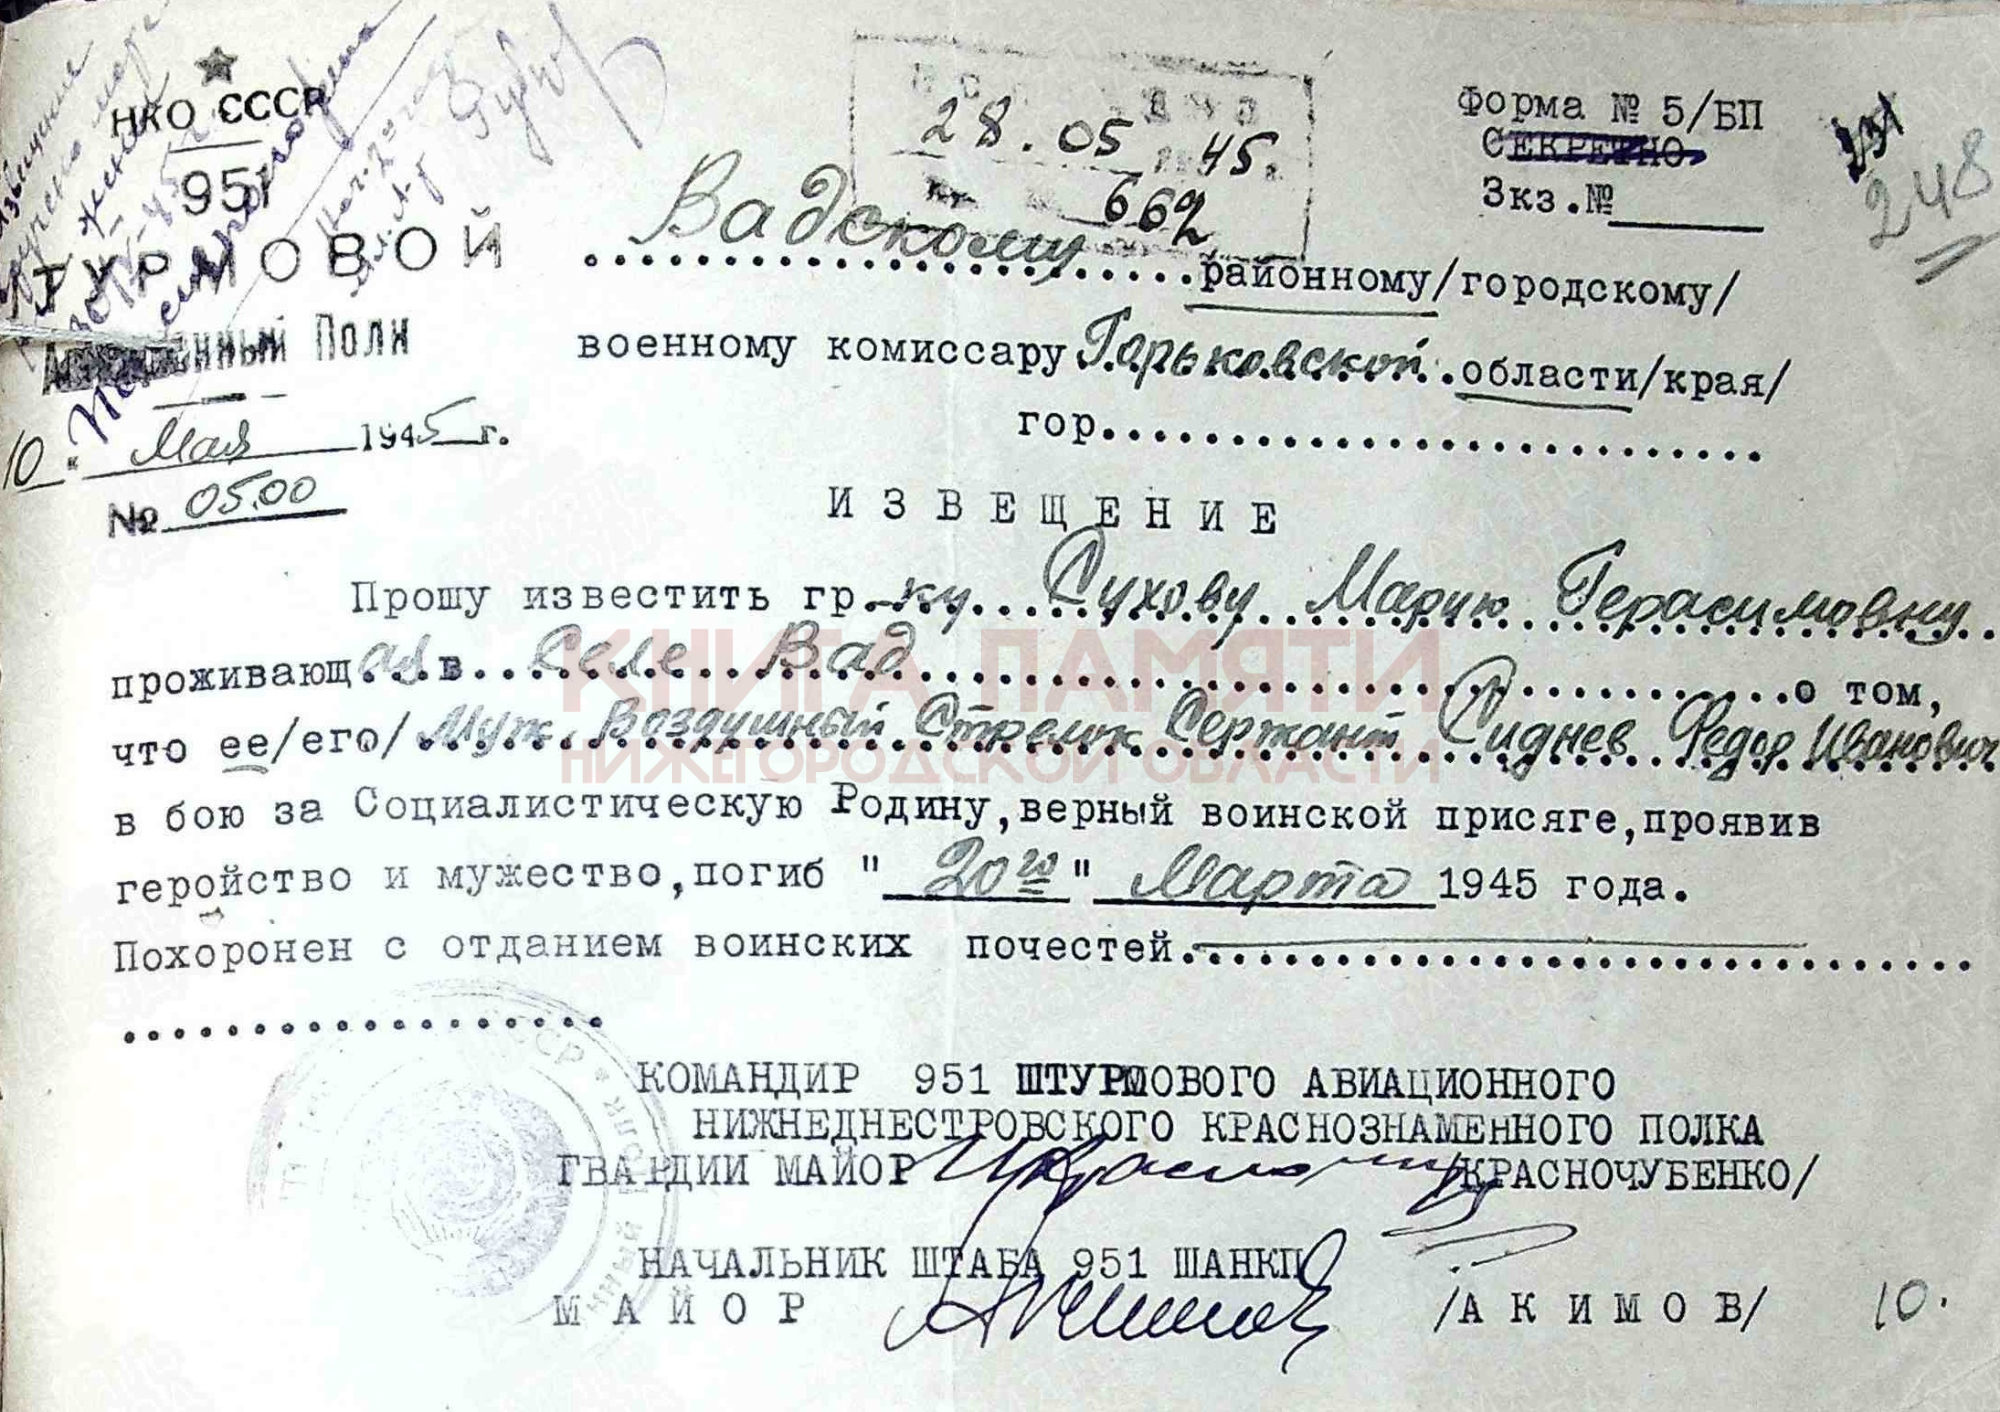 НКО СССР
951
ТУРМОВОЙ
Полк
10 " Мая 1945 г.
№ 05.00
28.05 45
662
Форма № 5/БП
СЕКРЕТНО
Экз.№
231
248
Вадскому районному/городскому/
военному комиссару Горьковской области/края/
гор.
ИЗВЕЩЕНИЕ
Прошу известить гр-ку Сухову Марию Герасимовну
проживающ ая в Селе Вад о том,
что ее/его/ Муж, Воздушный Стрелок Сержант Сиднев Федор Иванович
в бою за Социалистическую Родину, верный воинской присяге, проявив
геройство и мужество, погиб " 20го " Марта 1945 года.
Похоронен с отданием воинских почестей
КНИГА ПАМЯТИ
НИЖЕГОРОДСКОЙ ОБЛАСТИ
КОМАНДИР 951 ШТУРМОВОГО АВИАЦИОННОГО
НИЖНЕДНЕСТРОВСКОГО КРАСНОЗНАМЕННОГО ПОЛКА
ГВАРДИИ МАЙОР /КРАСНОЧУБЕНКО/
НАЧАЛЬНИК ШТАБА 951 ШАНКП
МАЙОР /АКИМОВ/
10.